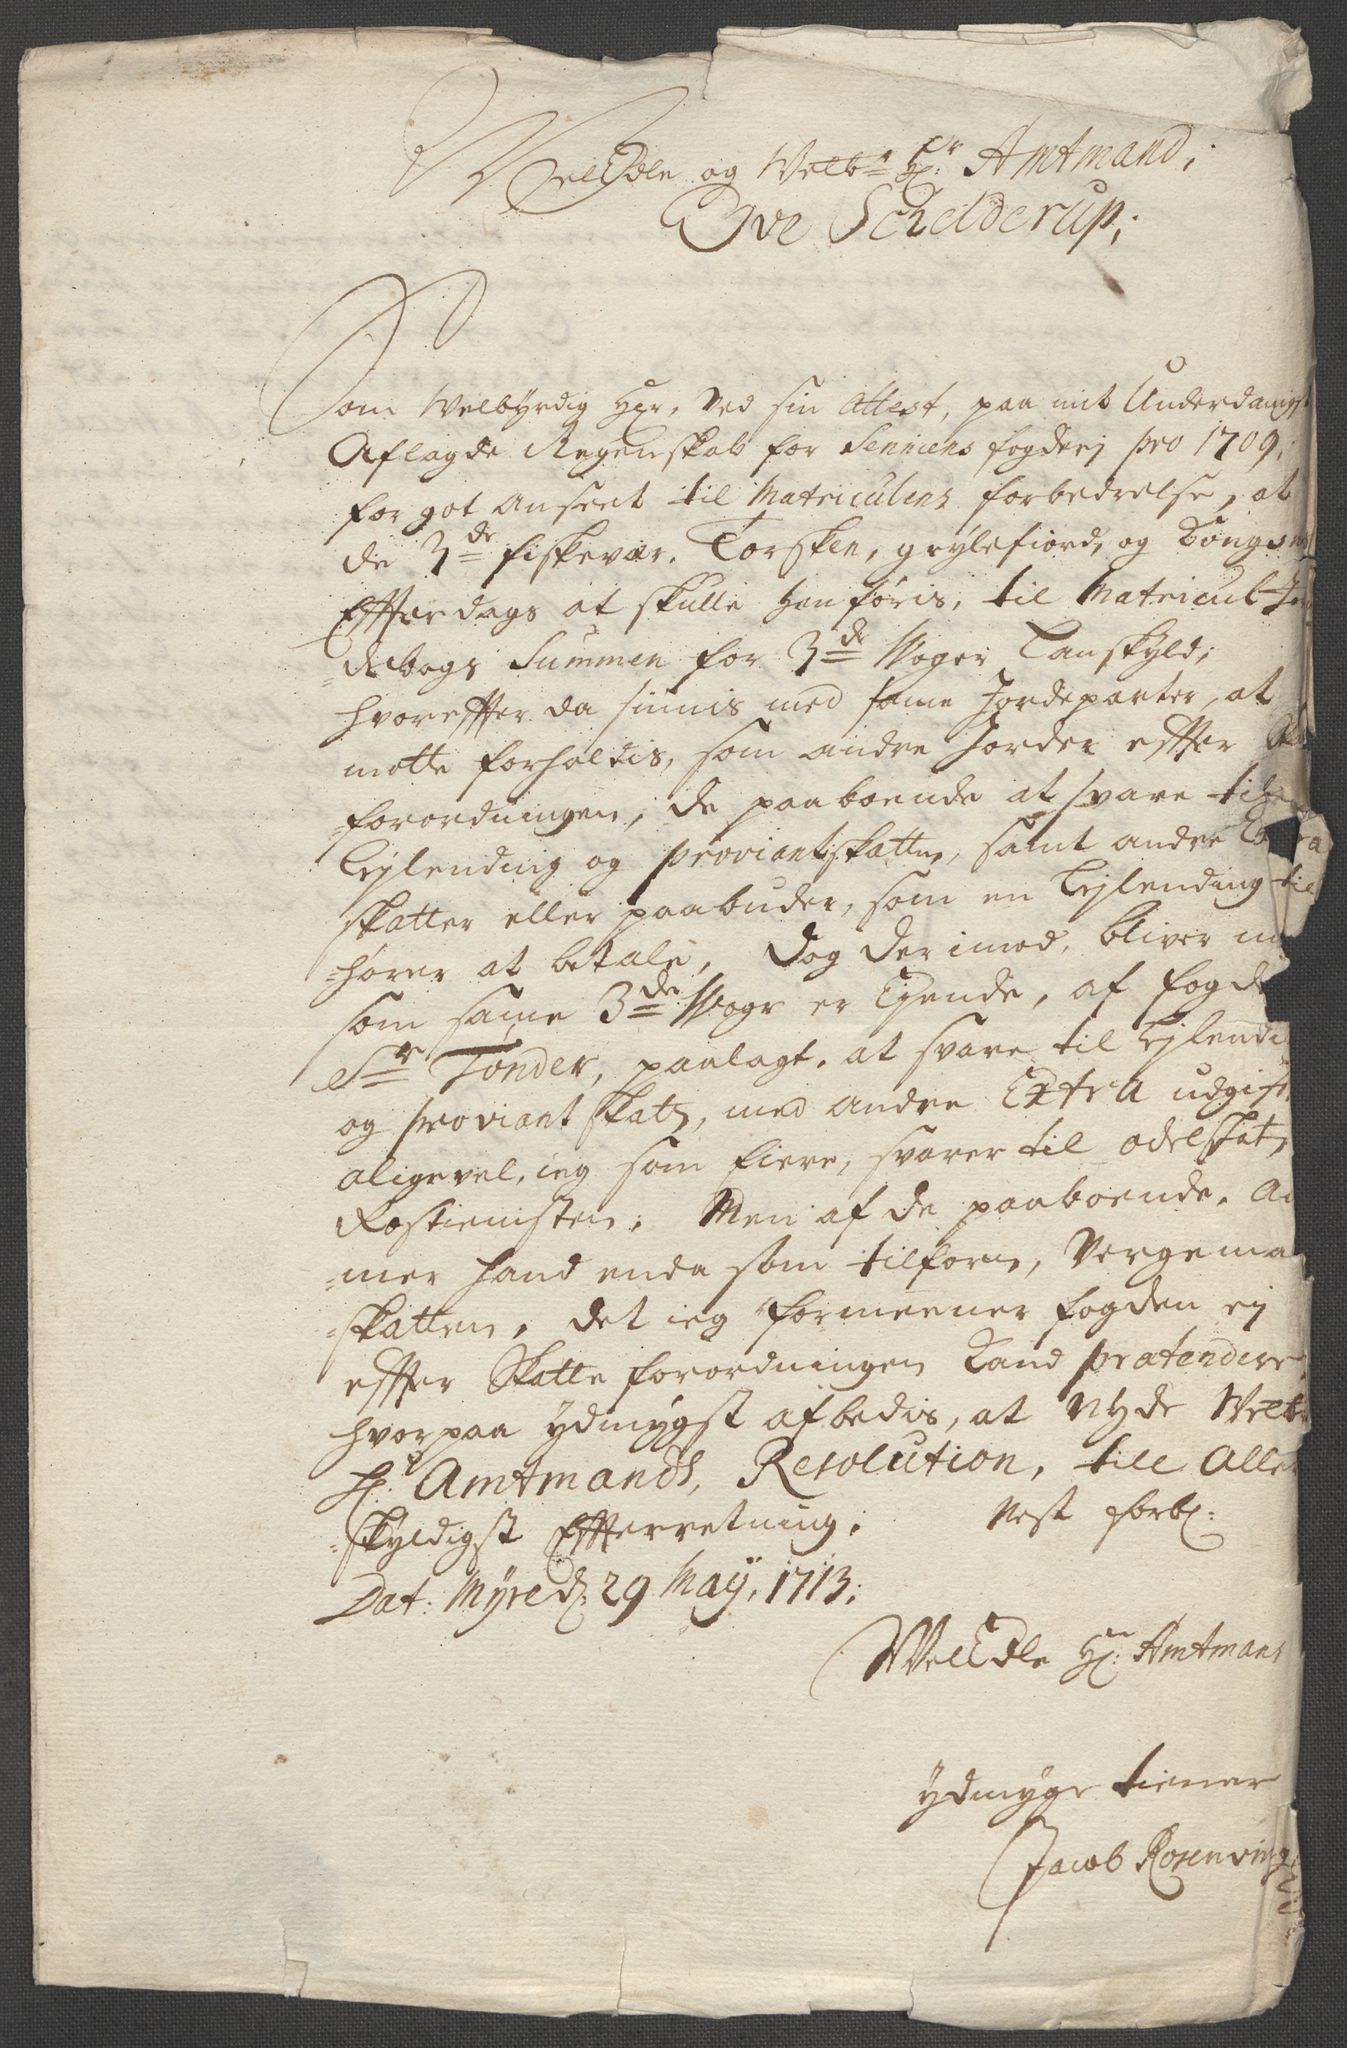 WelEdle og Welb.ne H.r Amtmand;
Ove Schelderup;
Som Welbyrdig Her, Ved sin Attest, paa mit Underdanigst
Aflagde Regenskab for Senniens fogderj pro 1709;
for got anseet til Matriculens forbedrelse, at
de 3de fiskevær. Torsken, gryllefiord, og
Effterdags at skulle henføris, til Matricul Jor
debogs Summen for 3de Woger Landskyld;
hvoreffter da siunis med same Jordeparter, at
motte forholdis, som andre Jorder effter
forordningen; de paaboende at svare til
Lejlending og proviantskatten, samt andre Extra
skatter eller paabuder, som en Lejlending til
hører at betale, Dog derimod, bliver
som same 3de Wogr er Ejende, af fogden
Sr Tonder, paalagt, at svare til Lejlendi
og proviant skatt, med andre Extra udgift
aligevel, ieg som Eiere, svarer til odelskatt,
Rostienisten; Men af de paaboende, An
mer hand enda som tilforn, Vergema
skatten, det ieg formeener fogden ej
effter Skatte forordningen Kand prætendere
hvorpaa ydmygst afbedis, at Nyde Welb
Hr Amtmands, Resolution, till Aller
skyldigst Effterretning; Nest forbl:
Dat: Myre d: 29 May, 1713;
WelEdle Hr: Amtmans
ydmyge tiener
Jacob Rosenving